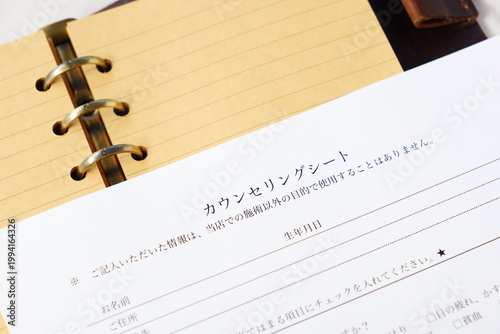 カウンセリングシート
※　ご記入いただいた情報は、当店での施術以外の目的で使用することはありません。
お名前　生年月日
ご住所
てはまる項目にチェックを入れてください。★
目の疲れ、かす
ますか？　〇貧血
Adobe Stock | #1994164326